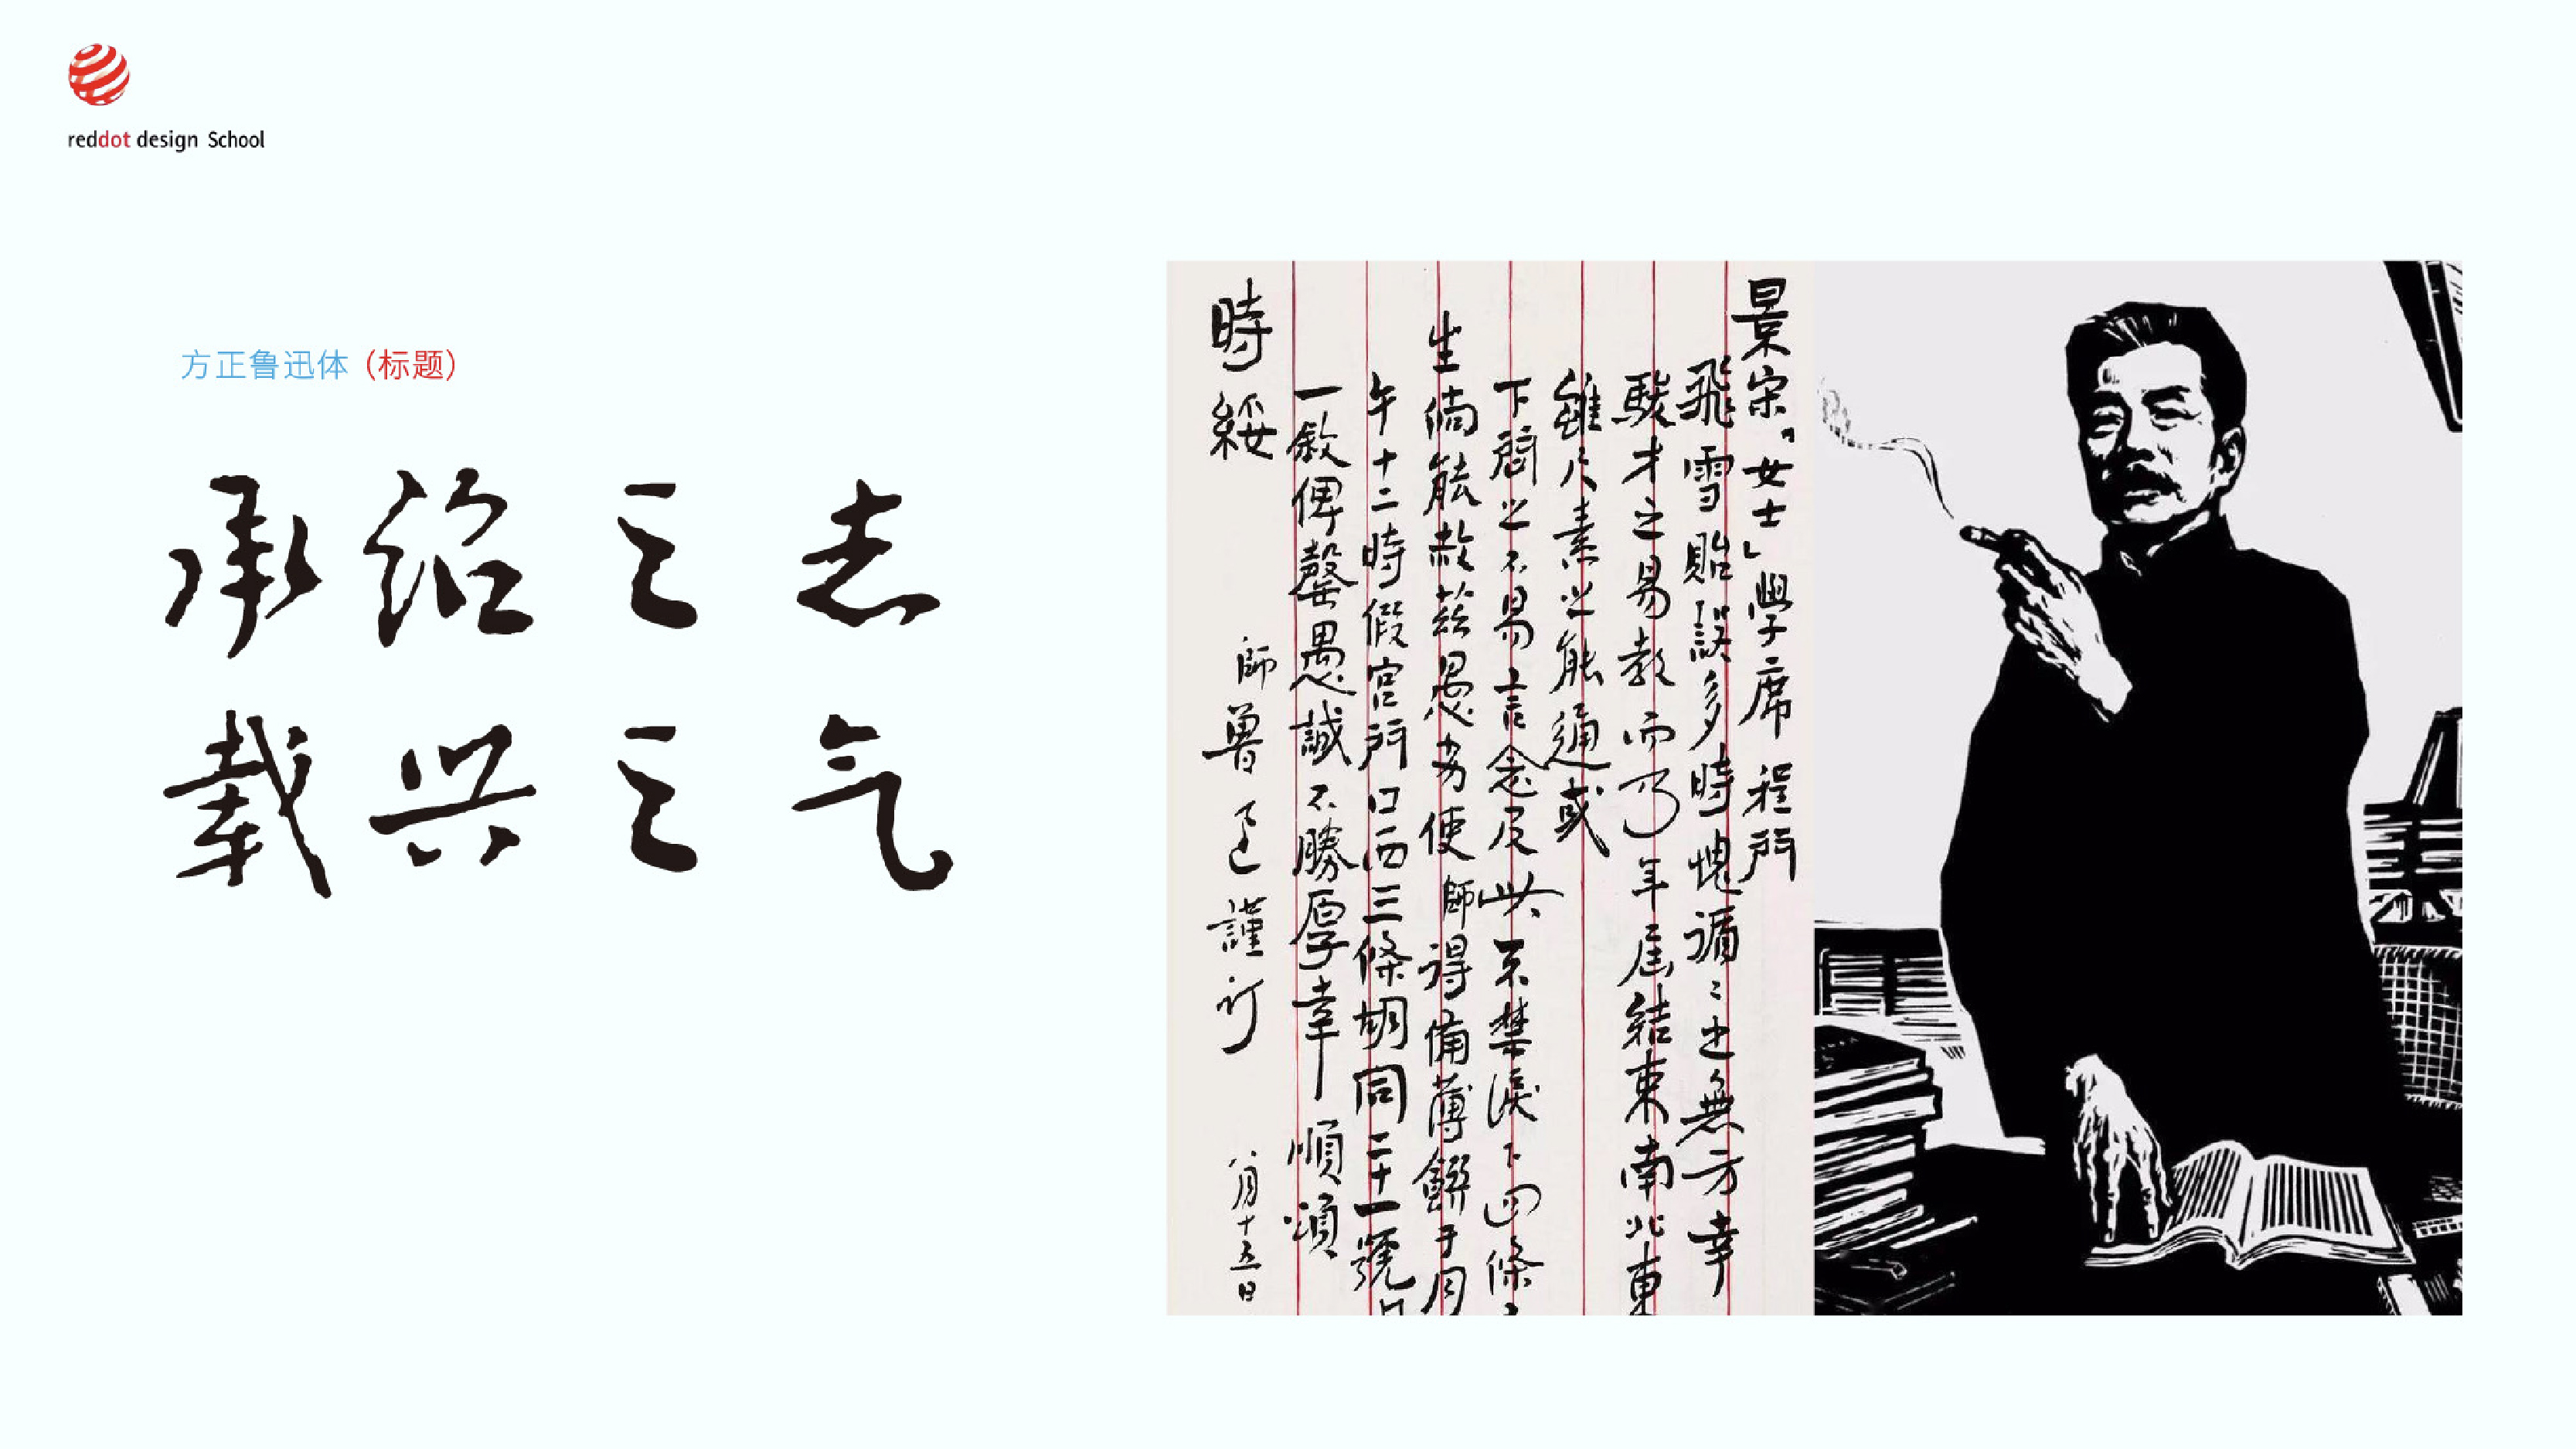 reddot design School
方正鲁迅体（标题）
承绍之志
载兴之气
景宋“女士”學席 程門
飛雪貽誤多時愧遁〻之無方幸
駿才之易教而乃年屆結束南北東
雖尺素之能通或
下問之不易言念及此不禁淚下四條
生倘能赦茲愚劣使師得備薄饌于月
午十二時假宮門口西三條胡同二十一號
一敘俾罄愚誠不勝厚幸 順頌
時綏
師魯迅謹訂
八月十五日